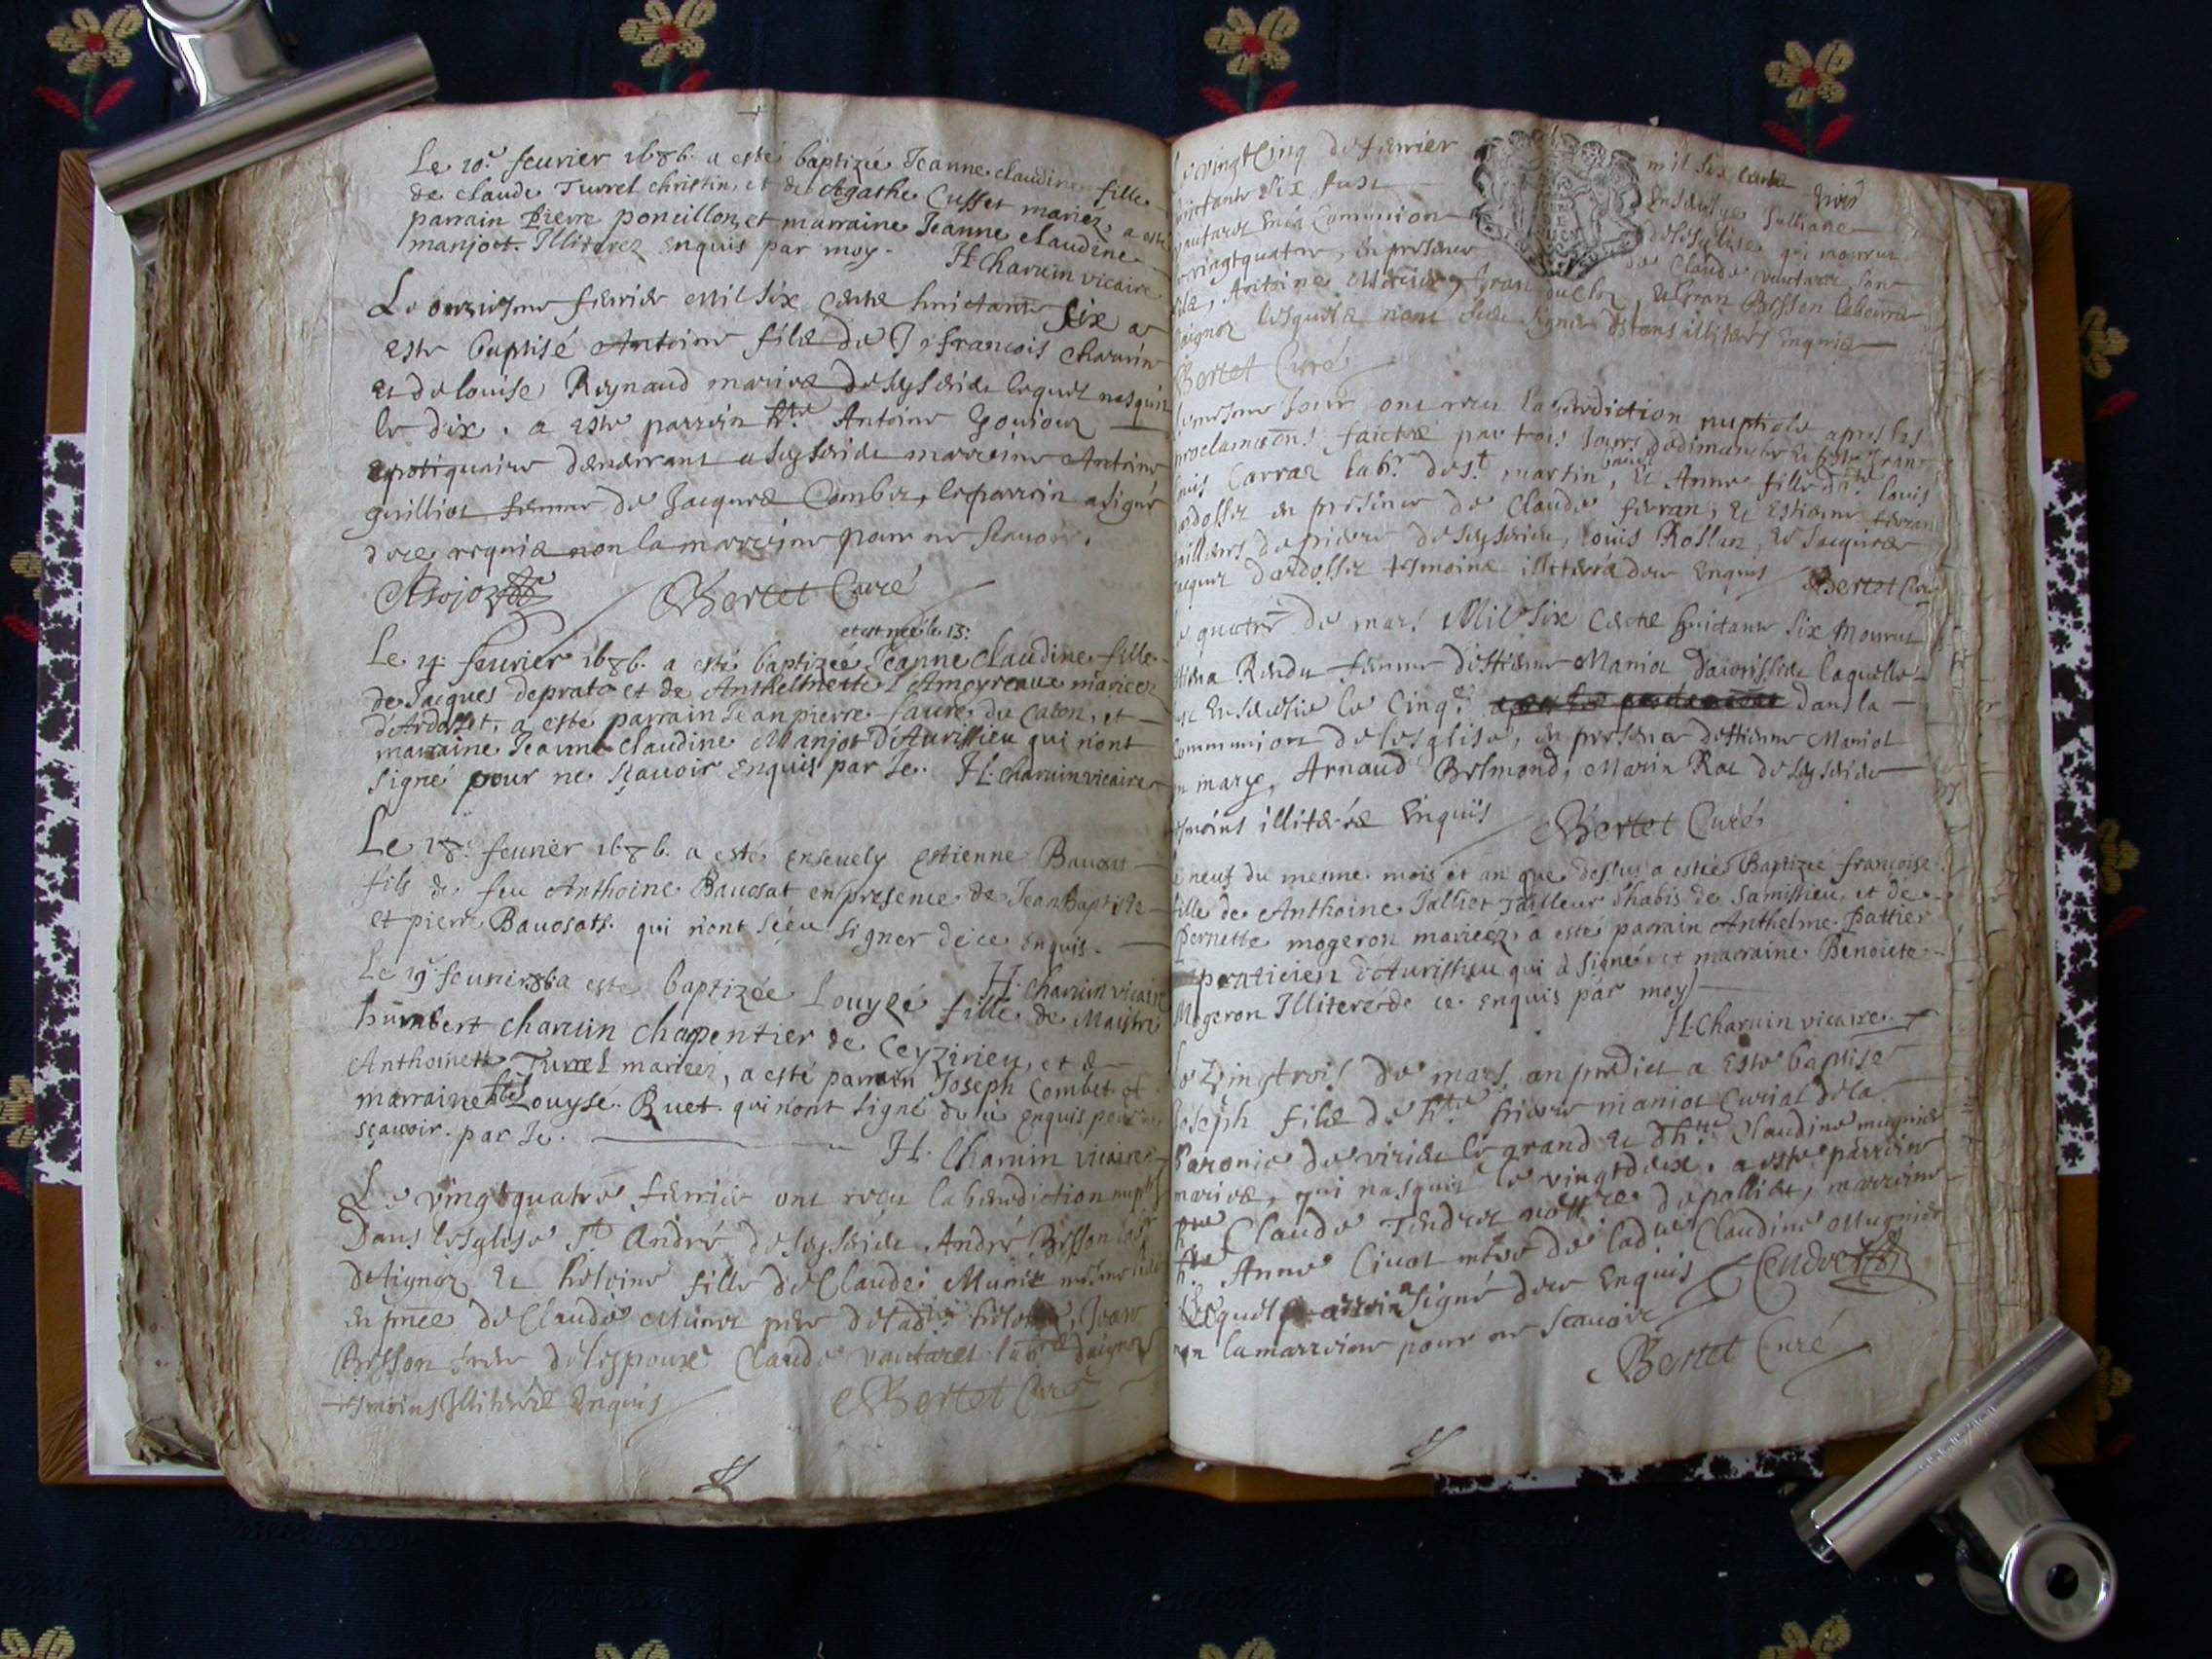 Le 10.e feurier 1686. a esté baptizée Jeanne claudine fille
de claude Turrel christin, et de Agathe Cusset mariéz, a esté
parrain Pierre poncillon, et marraine Jeanne claudine
manjot. Illiterez enquis par moy. H. Charuin vicaire
Le onziesme feurier Mil six cents huictante six a
este baptisé Antoine filz de Jn francois Charuin
et de louise Reynaud mariez de seyserieu lequel nasquit
le dix. a este parrein hte. Antoine Goujouz
apotiquaire demeurant a seyserieu marreine Antoine
guilliot femme de Jacques Combet, le parrein a signé
de ce requis non la marreine pour ne scauoir.
Bertet Curé
et est née le 13:
Le 14. feurier 1686. a esté baptizée Jeanne claudine fille
de Jacques deprato et de Anthelmette L'Amoyreaux mariez
d'Ardosset, a esté parrain Jean pierre faure de Calon, et
marraine Jeanne claudine Manjot d'Aurissieu qui n'ont
signé pour ne sçauoir enquis par Je. H. charuin vicaire
Le 18. feurier 1686. a esté enseuely estienne Bauosat
fils de feu Anthoine Bauosat en presence de Jean Baptiste
et pierre Bauosats. qui n'ont sceu signer de ce enquis.
H. charuin vicaire
Le 19 feurier 86 a este baptizée Louyse fille de Maistre
humbert charuin charpentier de Ceyzirieu, et de
Anthoinette Turrel mariez, a esté parrain Joseph Combet et
marraine Louyse Ruet qui n'ont signé de ce enquis pour ne
sçauoir. par Je.
H. Charuin vicaire
Le vingtquatre feurrier ont receu la benediction nuptle
Dans lesglise St. André de seyserieu André Bisson labr
de Aignoz et heloine fille de Claude Munet
en pnce de Claude Munet pere de ladte heloine, Jean
Bisson frere de lespoux Claude vautaret labr d'aignoz
tesmoins Illiterez Enquis
Bertet Curé
Le vingtcinq de feurrier mil six cents
huictante six fust Enseuelye
vautaret En la Comunion de lesglise qui mourut
le vingtquatre, en presence de Claude vautaret son
filz, Antoine, Jean duclos, et Jean Bisson laboureur
d'aignoz lesquelz nont sceu signer estans illiterés Enquis
Bertet Curé
Le mesme Jour ont receu la benediction nuptiale apres les
proclamaons. faictes par trois Jours de dimanche et feste Jean
louis Carraz labr. de st martin, et Anne fille louis
dardosset en presence de Claude ferran, et Estienne ferran
de seyserieu, louis Rossin, et Jacques
dardosset tesmoins illiterés de ce Enquis Bertet Curé
Le quatre. de mars Mil six cents huictante six Mourut
Rendu femme destienne Maniot daurissieu laquelle
fut Enseuelie le cinqe dans la
Communion de lesglise, en presence destienne Maniot
son mary, Arnaud Belmond, Marin Roc de seyserieu
tesmoins illiterés Enquis
Bertet Curé
Le neuf du mesme mois et an que dessus a esté Baptizée francoise
fille de Anthoine Jallier Tailleur d'habis de samissieu, et de
Pernette mogeron mariez, a esté parrain Anthelme Pattier
praticien d'Aurissieu qui a signé et marraine Benoiste
Mogeron Illitere de ce enquis par moy
H. Charuin vicaire.
Le vingttrois de mars an susdict a este baptisé
Joseph filz de hte. pierre maniot Curial de la
Baronie de virieu le grand et dhte. Claudine mugnier
mariez, qui nasquit le vingtdeux. a este parrein
hte Claude Tendret nottre. de pollieu, marreine
hte Anne Ciuot mere de ladte Claudine Mugnier
lequel parrein a signé de ce Enquis Tendret
non la marreine pour ne scauoir
Bertet Curé